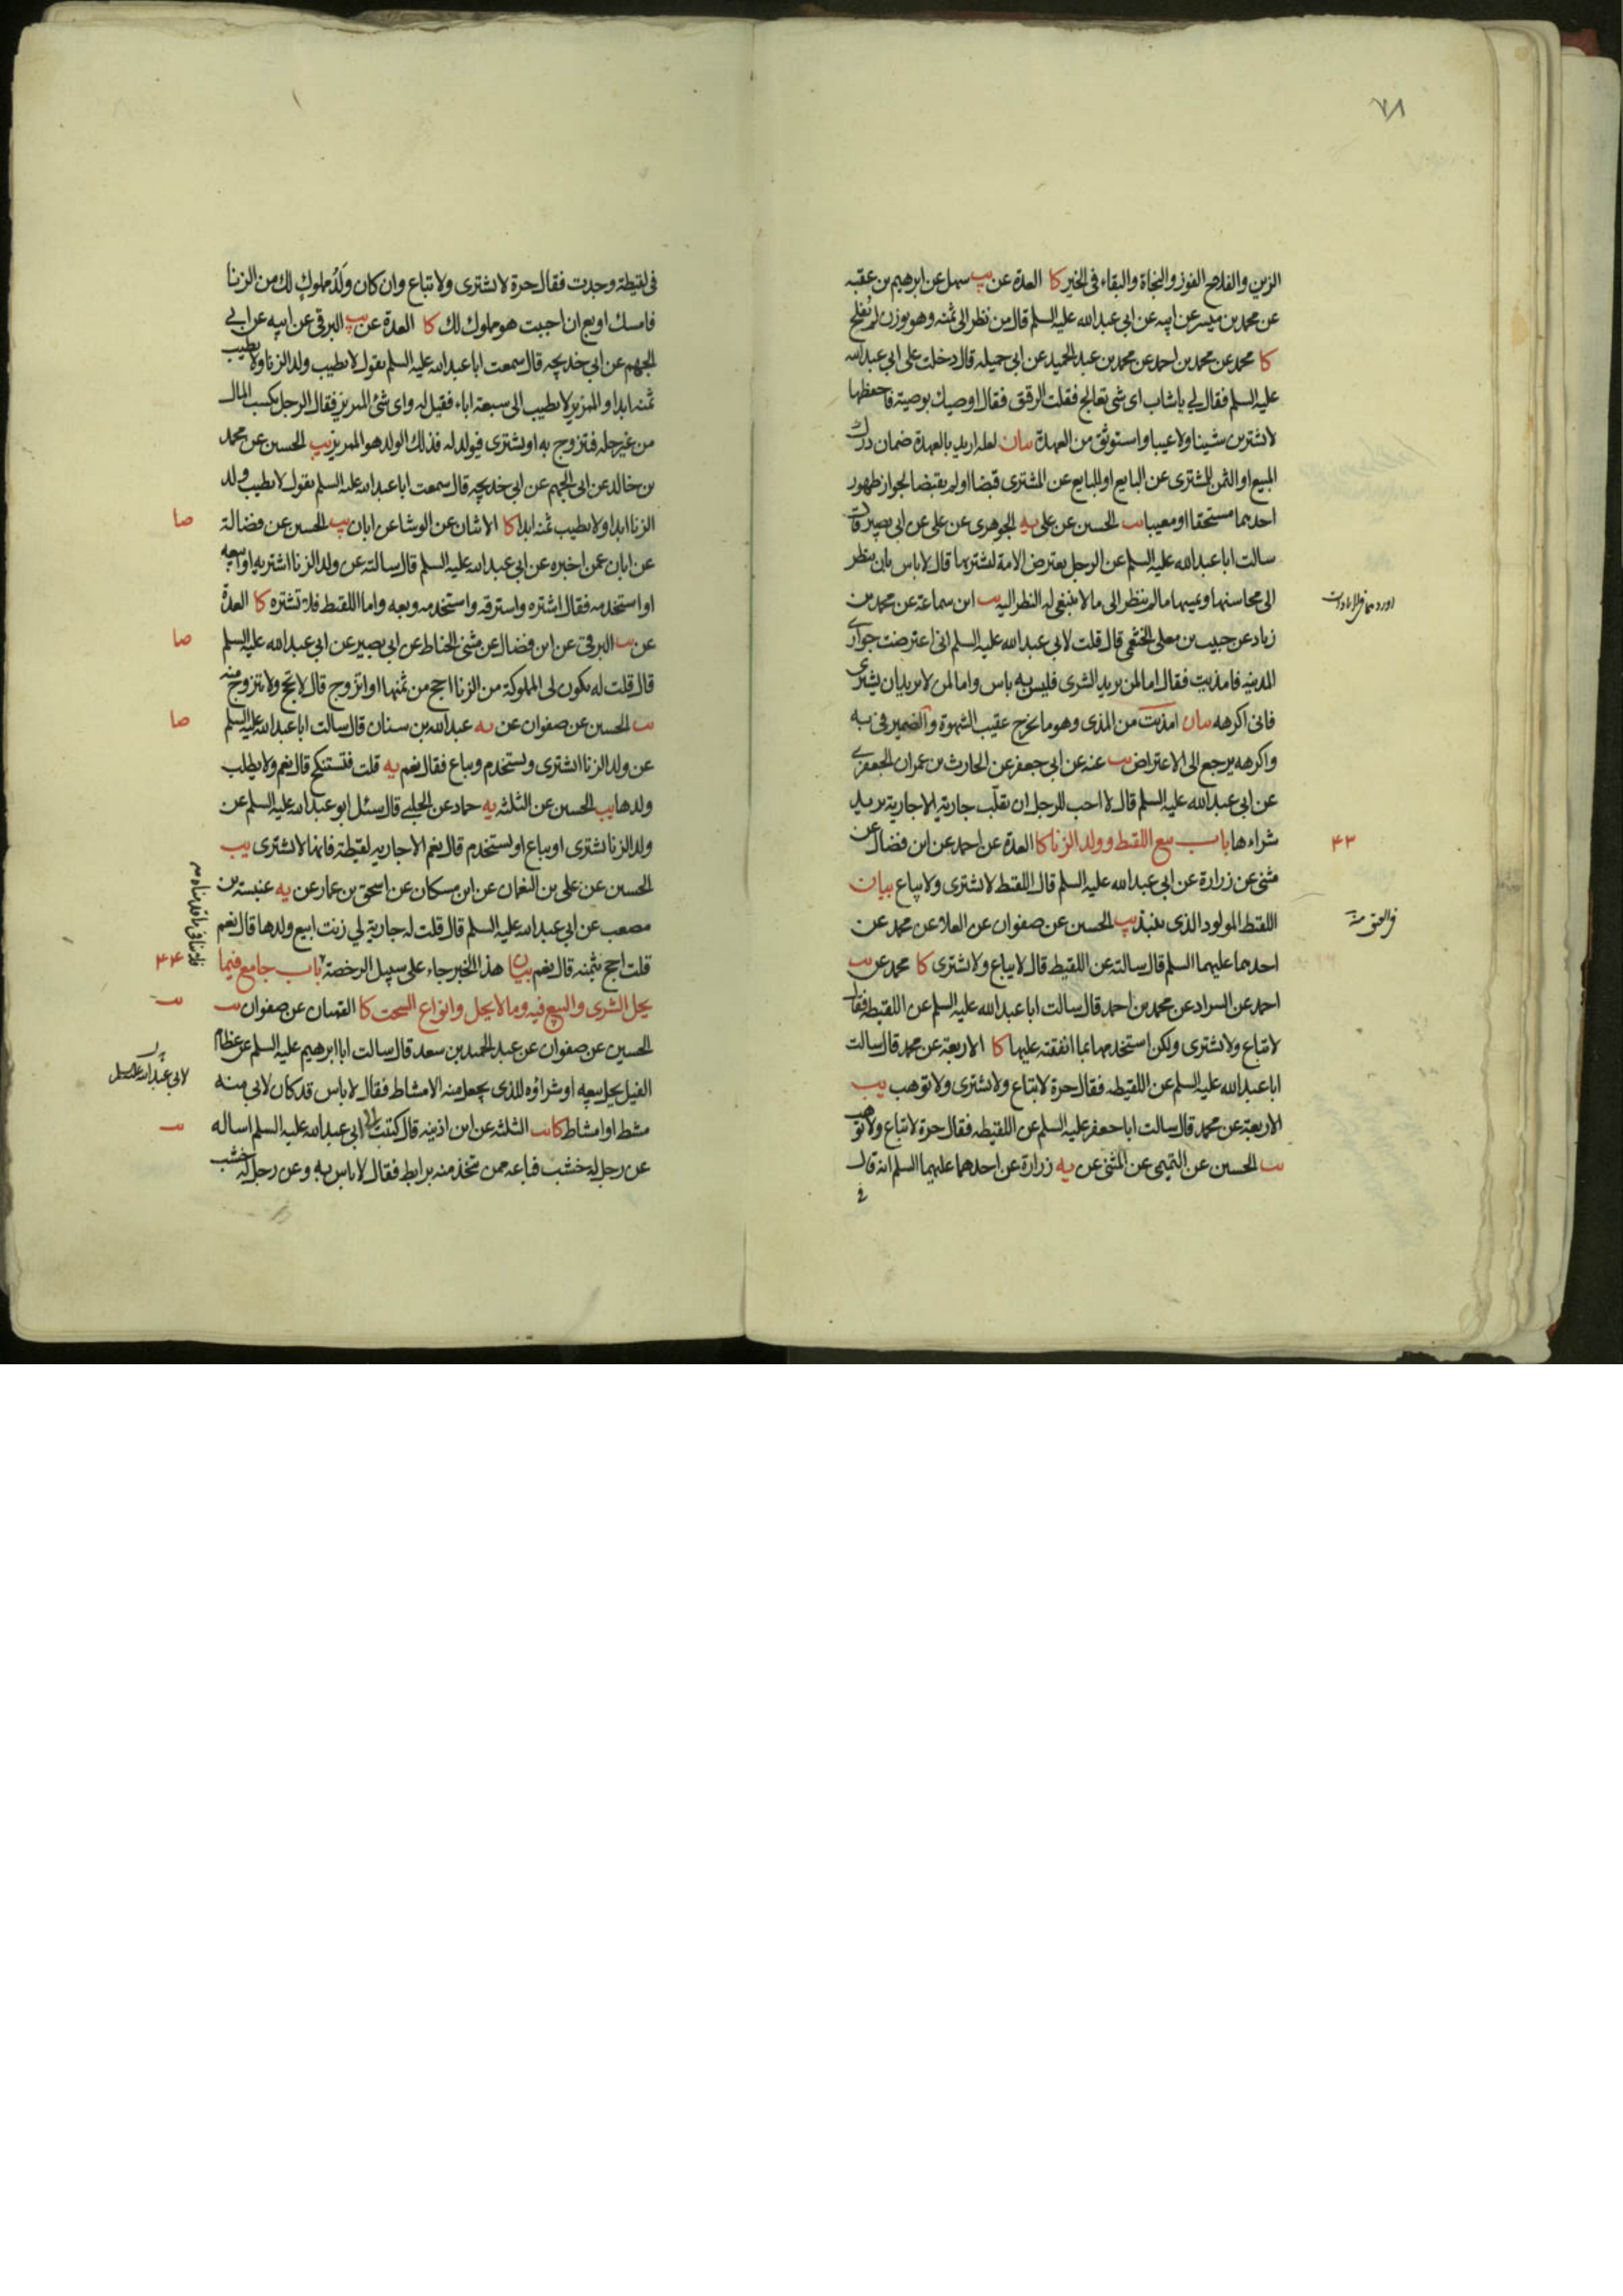 ٧٨
الزين والفلاح الفوز والنجاة والبقاء فى الخير كا العدة عن يب سهل عن ابرهيم بن عقبه
عن محمد بن ميسر عن ابيه عن ابى عبد الله عليه السلم قال من نظر الى ثمنه وهو يوزن لم يفلح
كا محمد عن محمد بن احمد عن محمد بن عبد الحميد عن ابى جميله قال دخلت على ابى عبد الله
عليه السلم فقال لى يا شاب اى شى تعالج فقلت الرقيق فقال اوصيك بوصية فاحفظها
لا تشترين شينا ولا عيبا واستوثق من العهدة بيان لعله اريد بالعهدة ضمان درك
المبيع او الثمن للمشترى عن البايع او للبايع عن المشترى قبضا او لم يقبضا لجواز ظهور
احدهما مستحقا او معيبا يب الحسين عن على يه الجوهرى عن على عن ابى بصير قال
سالت ابا عبد الله عليه السلم عن الرجل يعترض الامة ليشتريها قال لا باس بان ينظر
الى محاسنها ويمسها ما لم ينظر الى ما لا ينبغى له النظر اليه يب ابن سماعة عن محمد بن
زياد عن حبيب بن معلى الخثعمى قال قلت لابى عبد الله عليه السلم انى اعترضت جوارى
المدينه فامذيت فقال اما لمن يريد الشرى فليس به باس واما لمن لا يريد ان يشترى
فانى اكرهه بيان امذيت من المذى وهو ما يخرج عقيب الشهوة والضمير فى به
واكرهه يرجع الى الاعتراض يب عنه عن ابى جعفر عن الحارث بن عمران الجعفرى
عن ابى عبد الله عليه السلم قال لا احب للرجل ان يقلب جارية الا جارية يريد
شراءها باب بيع اللقيط وولد الزنا كا العدة عن احمد عن ابن فضال عن
٤٣
مثنى عن زرارة عن ابى عبد الله عليه السلم قال اللقيط لا يشترى ولا يباع بيان
اللقيط المولود الذى ينبذ يب الحسين عن صفوان عن العلا عن محمد عن
احدهما عليهما السلم قال سالته عن اللقيط قال لا يباع ولا يشترى كا محمد عن يب
احمد عن السراد عن محمد بن احمد قال سالت ابا عبد الله عليه السلم عن اللقيطه فقال
لا تباع ولا تشترى ولكن استخدمها بما انفقته عليها كا الاربعة عن محمد قال سالت
ابا عبد الله عليه السلم عن اللقيطه فقال حرة لا تباع ولا تشترى ولا توهب يب
الاربعة عن محمد قال سالت ابا جعفر عليه السلم عن اللقيطه فقال حرة لا تباع ولا توهب
يب الحسين عن التميمى عن المثنى عن يه زرارة عن احدهما عليهما السلم انه قال
فى
فى لقيطة وجدت فقال حرة لا تشترى ولا تباع وان كان ولد مملوك لك من الزنا
فامسك او بع ان احببت هو مملوك لك كا العدة عن يب البرقى عن ابيه عن ابى
الجهم عن ابى خديجه قال سمعت ابا عبد الله عليه السلم يقول لا يطيب ولد الزنا ولا يطيب
ثمنه ابدا والممزير لا يطيب الى سبعة اباء فقيل له واى شئ الممزير فقال الرجل يكسب المال
من غير حله فتزوج به او يشترى فيولد له فذلك الولد هو الممزير يب الحسين عن محمد
بن خالد عن ابى الجهم عن ابى خديجه قال سمعت ابا عبد الله عليه السلم يقول لا يطيب ولد
الزنا ابدا ولا يطيب ثمنه ابدا كا الاثنان عن الوشا عن ابان يب الحسين عن فضالة
صا
عن ابان عمن اخبره عن ابى عبد الله عليه السلم قال سالته عن ولد الزنا اشتريه او ابيعه
او استخدمه فقال اشتره واسترقه واستخدمه وبعه واما اللقيط فلا تشتره كا العدة
عن يب البرقى عن ابن فضال عن مثنى الحناط عن ابى بصير عن ابى عبد الله عليه السلم
صا
قال قلت له يكون لى المملوكة من الزنا احج من ثمنها او اتزوج قال لا تحج ولا تتزوج منه
يب الحسين عن صفوان عن يه عبد الله بن سنان قال سالت ابا عبد الله عليه السلم
صا
عن ولد الزنا اشترى ويستخدم ويباع فقال نعم يه قلت فتستنكح قال نعم ولا يطلب
ولدها يب الحسين عن الثلثه يه حماد عن الحلبى قال سئل ابو عبد الله عليه السلم عن
ولد الزنا يشترى او يباع او يستخدم قال نعم الا جاريه لقيطة فانها لا تشترى يب
الحسين عن على بن النعمان عن ابن مسكان عن اسحق بن عمار عن يه عنبسة بن
مصعب عن ابى عبد الله عليه السلم قال قلت له جارية لى زنت ابيع ولدها قال نعم
قلت احج بثمنه قال نعم بيان هذا الخبر جاء على سبيل الرخصة باب جامع فيما
٤٤
يحل الشرى والبيع فيه وما لا يحل وانواع السحت كا القميان عن صفوان يب
الحسين عن صفوان عن عبد الحميد بن سعد قال سالت ابا ابرهيم عليه السلم عن عظام
الفيل يحل بيعه او شراؤه للذى يجعل منه الامشاط فقال لا باس قد كان لابى منه
مشط او امشاط كا يب الثلثه عن ابن اذينه قال كتبت الى ابى عبد الله عليه السلم اساله
عن رجل له خشب فباعه ممن يتخذ منه برابط فقال لا باس به وعن رجل له خشب